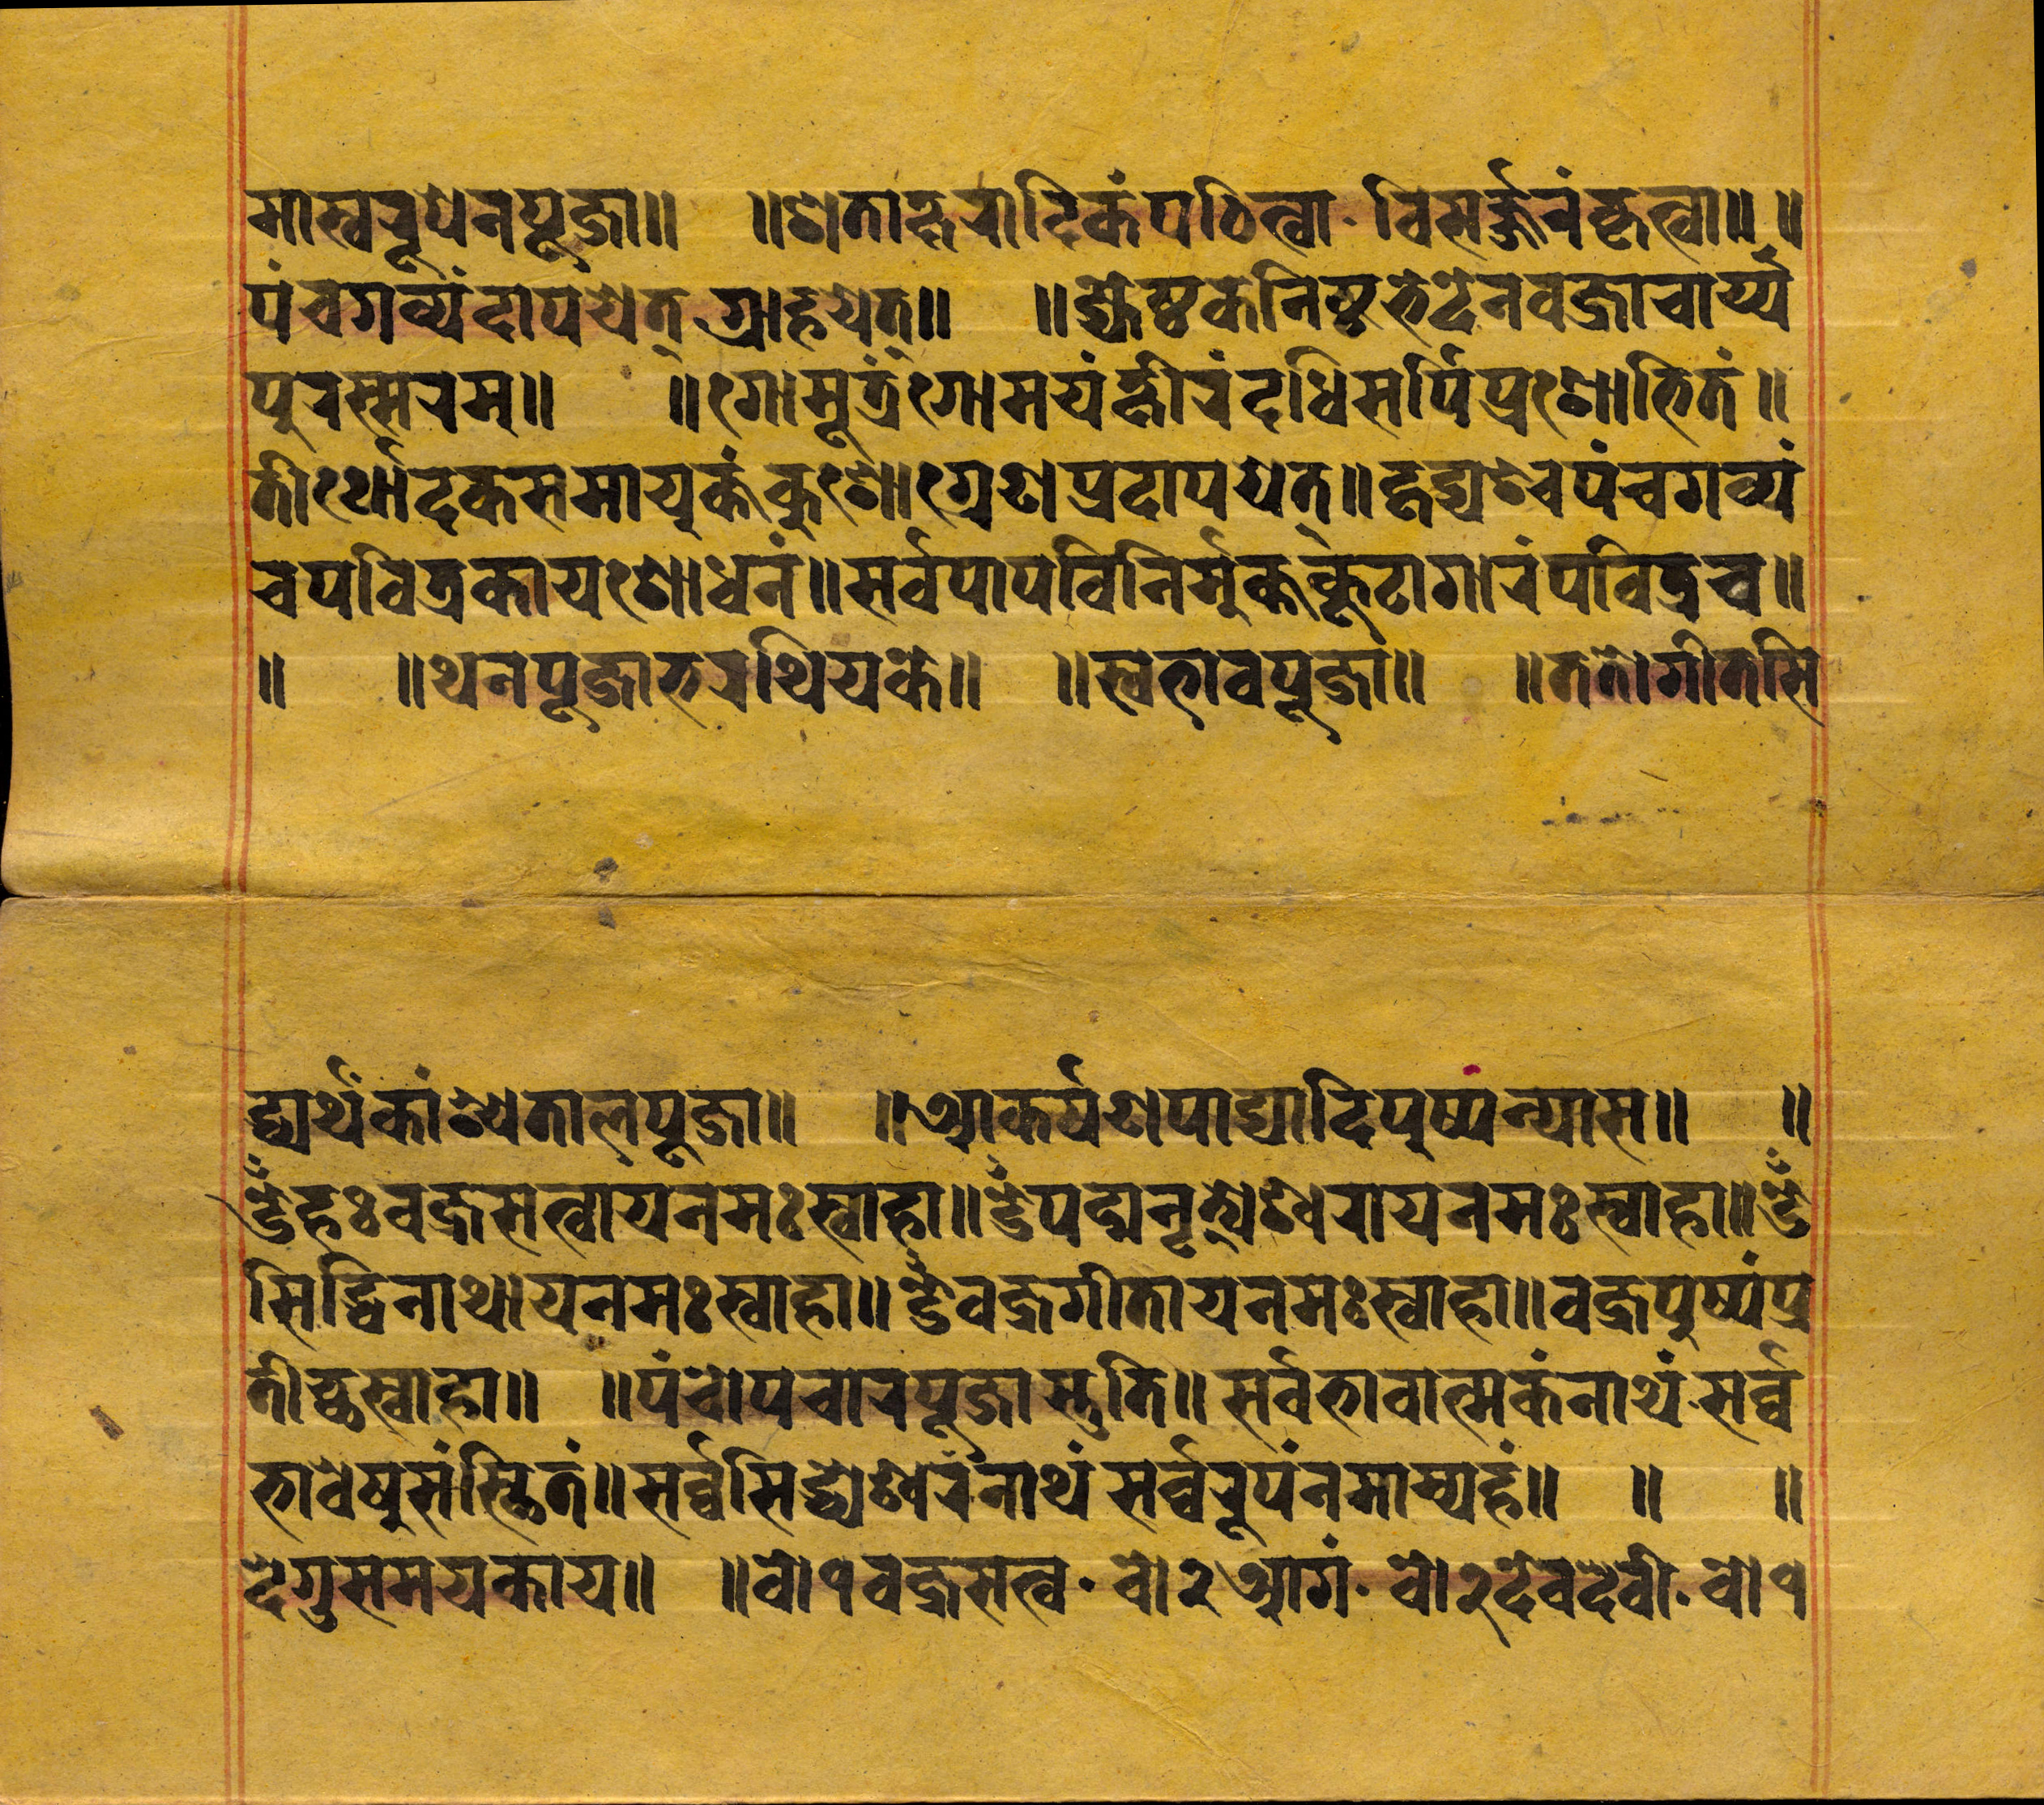 मास्वरूपेनपूजा॥ ॥शताक्षरादिकंपठित्वा· विसर्ज्जनंकृत्वा॥ ॥
पंचगव्यंदापयेत् ग्राहयेत्॥ ॥ज्येष्ठकेनिष्टभेदेनवज्राचार्य्य
पुरस्मरम्॥ ॥गोमूत्रंगोमयंक्षीरंदधिसर्पिप्रशोभितं॥
तीर्थोदकसमायुक्तंकुशोग्रेणप्रदापयेत्॥हृद्यश्चपंचगव्यं
चपवित्रकायशोधनं॥सर्वपापविनिर्मुक्तकूटागारंपवित्रच॥
॥ ॥थनपूजाभरथियके॥ ॥स्वभावपूजा॥ ॥ततोगीतसि
द्ध्यर्थंकांश्यतालपूजा॥ ॥आकर्षणपाद्यादिपुष्पंन्यास॥ ॥
ॐहःवज्रसत्वायनमःस्वाहा॥ॐपद्मनृत्येश्वरायनमःस्वाहा॥ॐ
सिद्धिनाथायनमःस्वाहा॥ॐवज्रगीतायनमःस्वाहा॥वज्रपुष्पंप्र
तीच्छस्वाहा॥ ॥पंचोपचारपूजास्तुति॥सर्वभावात्मकंनाथं·सर्व्व
भावेषुसंस्थितं॥सर्व्वसिद्ध्येश्वरंनाथं सर्व्वरूपंनमाम्यहं॥ ॥ ॥
देगुसमयकाय॥ ॥बो१वज्रसत्व· बो२आगं· बो२देवदेवी· बो१